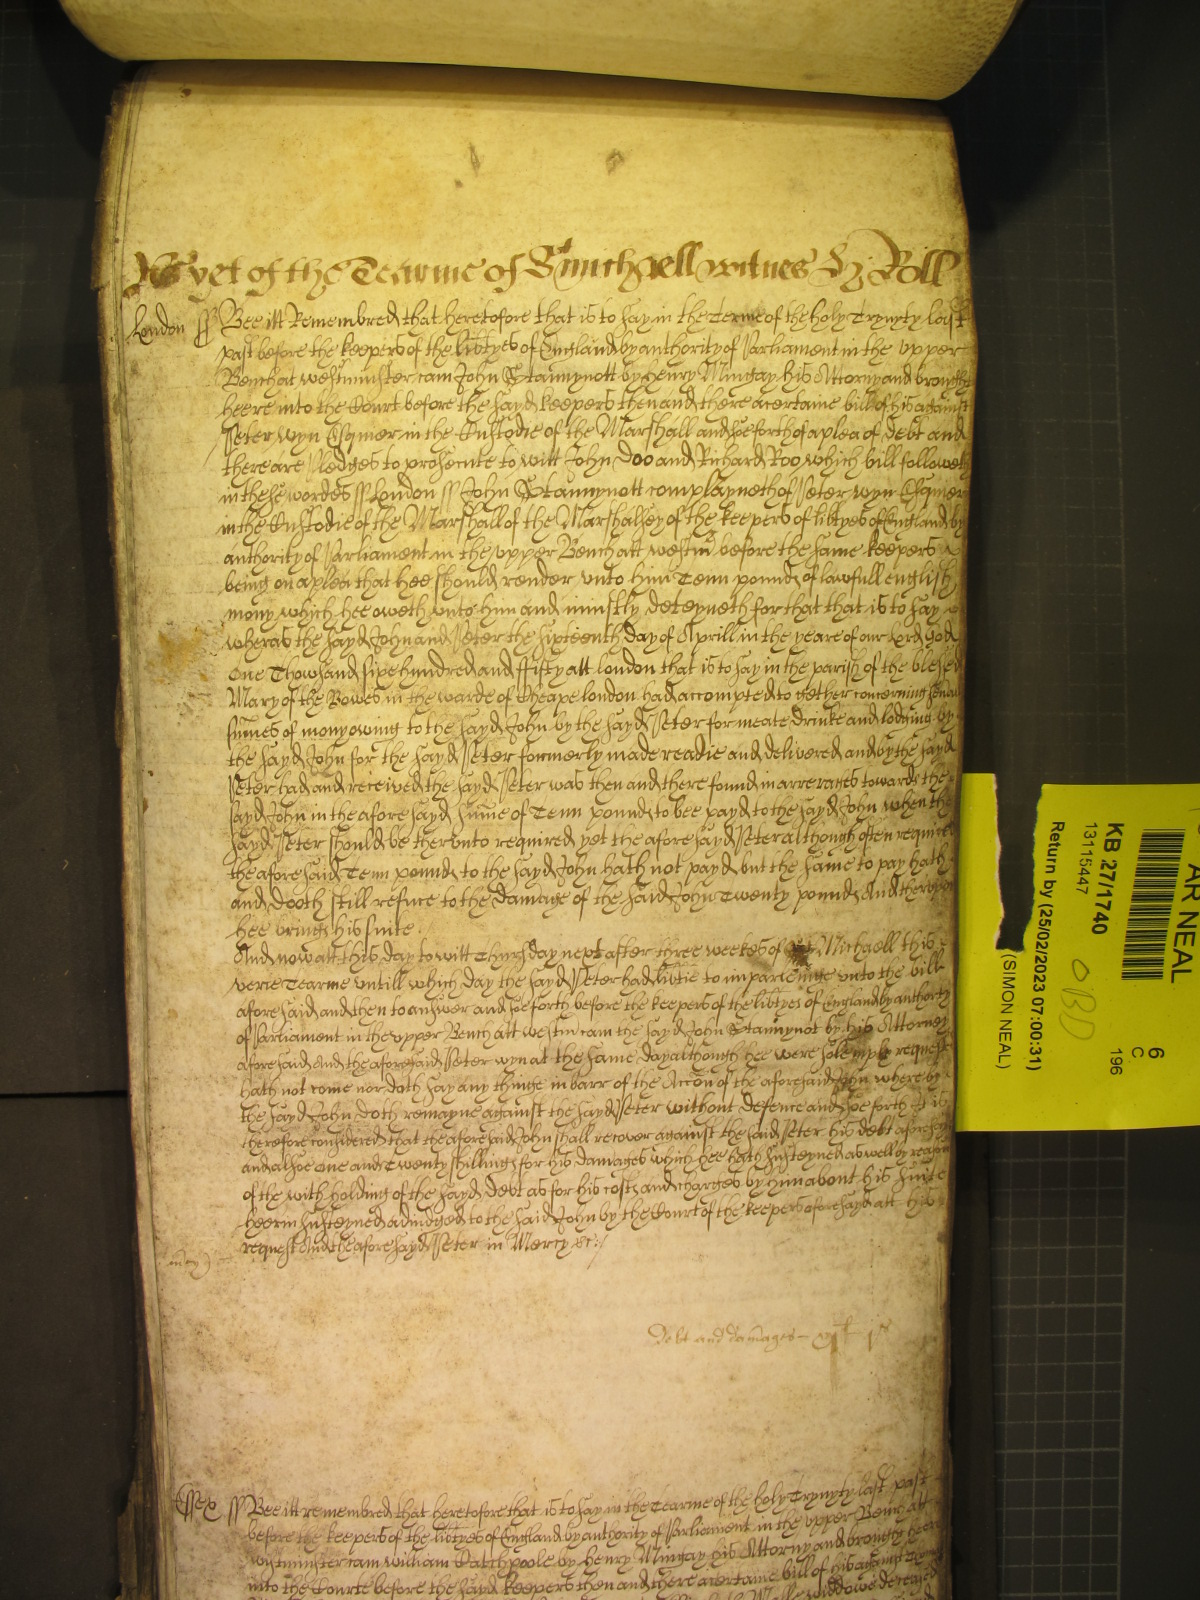 As yet of the Tearme of St michaell witnes Ly: Roll
London ss Bee itt Remembred that heretofore that is to say in the Terme of the holy Trynyty last
past before the keepers of the libtyes of England by authority of Parliament in the upper
Bench at westminster cam John Stannynott by Henry Mingay his Attorny and brought
heere into the Court before the sayd keepers then and there a certaine bill of his against
Peter wyn Esquier in the Custodie of the Marshall and soe forth of a plea of debt and
there are Pledges to prosecute to witt John Doo and Richard Roo which bill followeth
in these wordes ss London ss John Stannynott complayneth of Peter wyn Esquier
in the Custodie of the Marshall of the Marshalsey of the keepers of libtyes of England by
authority of Parliament in the upper Bench att westm before the same keepers
being on a plea that hee should render unto him Tenn pounds of lawfull english
mony which hee oweth unto him and uniustly deteyneth for that that is to say
wheras the sayd John and Peter the sixteenth day of Aprill in the yeare of our Lord god
One Thowsand sixe hundred and ffifty att london that is to say in the parish of the blessed
Mary of the Bowes in the warde of Cheape london had accompted together concerning
sumes of mony owing to the sayd John by the sayd Peter for meate drinke and lodging by
the sayd John for the sayd Peter formerly made readie and delivered and by the sayd
Peter had and received the sayd Peter was then and there found in arrerages towards the
sayd John in the afore sayd sume of Tenn pounds to bee payd to the sayd John when the
sayd Peter should be therunto required yet the afore sayd Peter although often required
the afore said Tenn pounds to the sayd John hath not payd but the same to pay hath
and dooth still refuse to the damage of the said John Twenty pounds And therupon
hee brings his suite
And now att this day to witt Thursday next after three weekes of Michaell this
verie Tearme untill which day the sayd Peter had libtie to imparle unto the bill
aforesaid and then to answer and soe forth before the keepers of the libtyes of England by authority
of Parliament in the upper Bench att westm cam the sayd John Stannynot by his Attorney
aforesaid And the aforesaid Peter wyn at the same day although hee were solemply request
hath not come nor doth say any thinge in barr of the Accon of the aforesaid John wherby
the sayd John doth remayne against the sayd Peter without defence and soe forth It is
therefore considered that the aforesaid John shall recover against the said Peter his debt aforesayd
and alsoe one and twenty shillings for his damages which hee hath susteyned as well by reason
of the with holding of the sayd debt as for his costs and charges by him about his suite
heerin susteyned adiudged to the said John by the Court of the keepers aforesayd att his
request And the aforesayd Peter in Mercy &c:/
mcy
Debt and damages - xjli js
Essex ss Bee itt remembred that heretofore that is to say in the Tearme of the holy Trynyty last past
before the keepers of the libtyes of England by authority of Parliament in the upper Bench att
westminster cam william Catchpoole by Henry Mingay his Attorny and brought heere
into the Courte before the sayd keepers then and there a certaine bill of his against
widdowe deceased
AR NEAL
KB 27/1740
13115447
Return by (25/02/2023 07:00:31)
(SIMON NEAL)
OBD
6
C
196